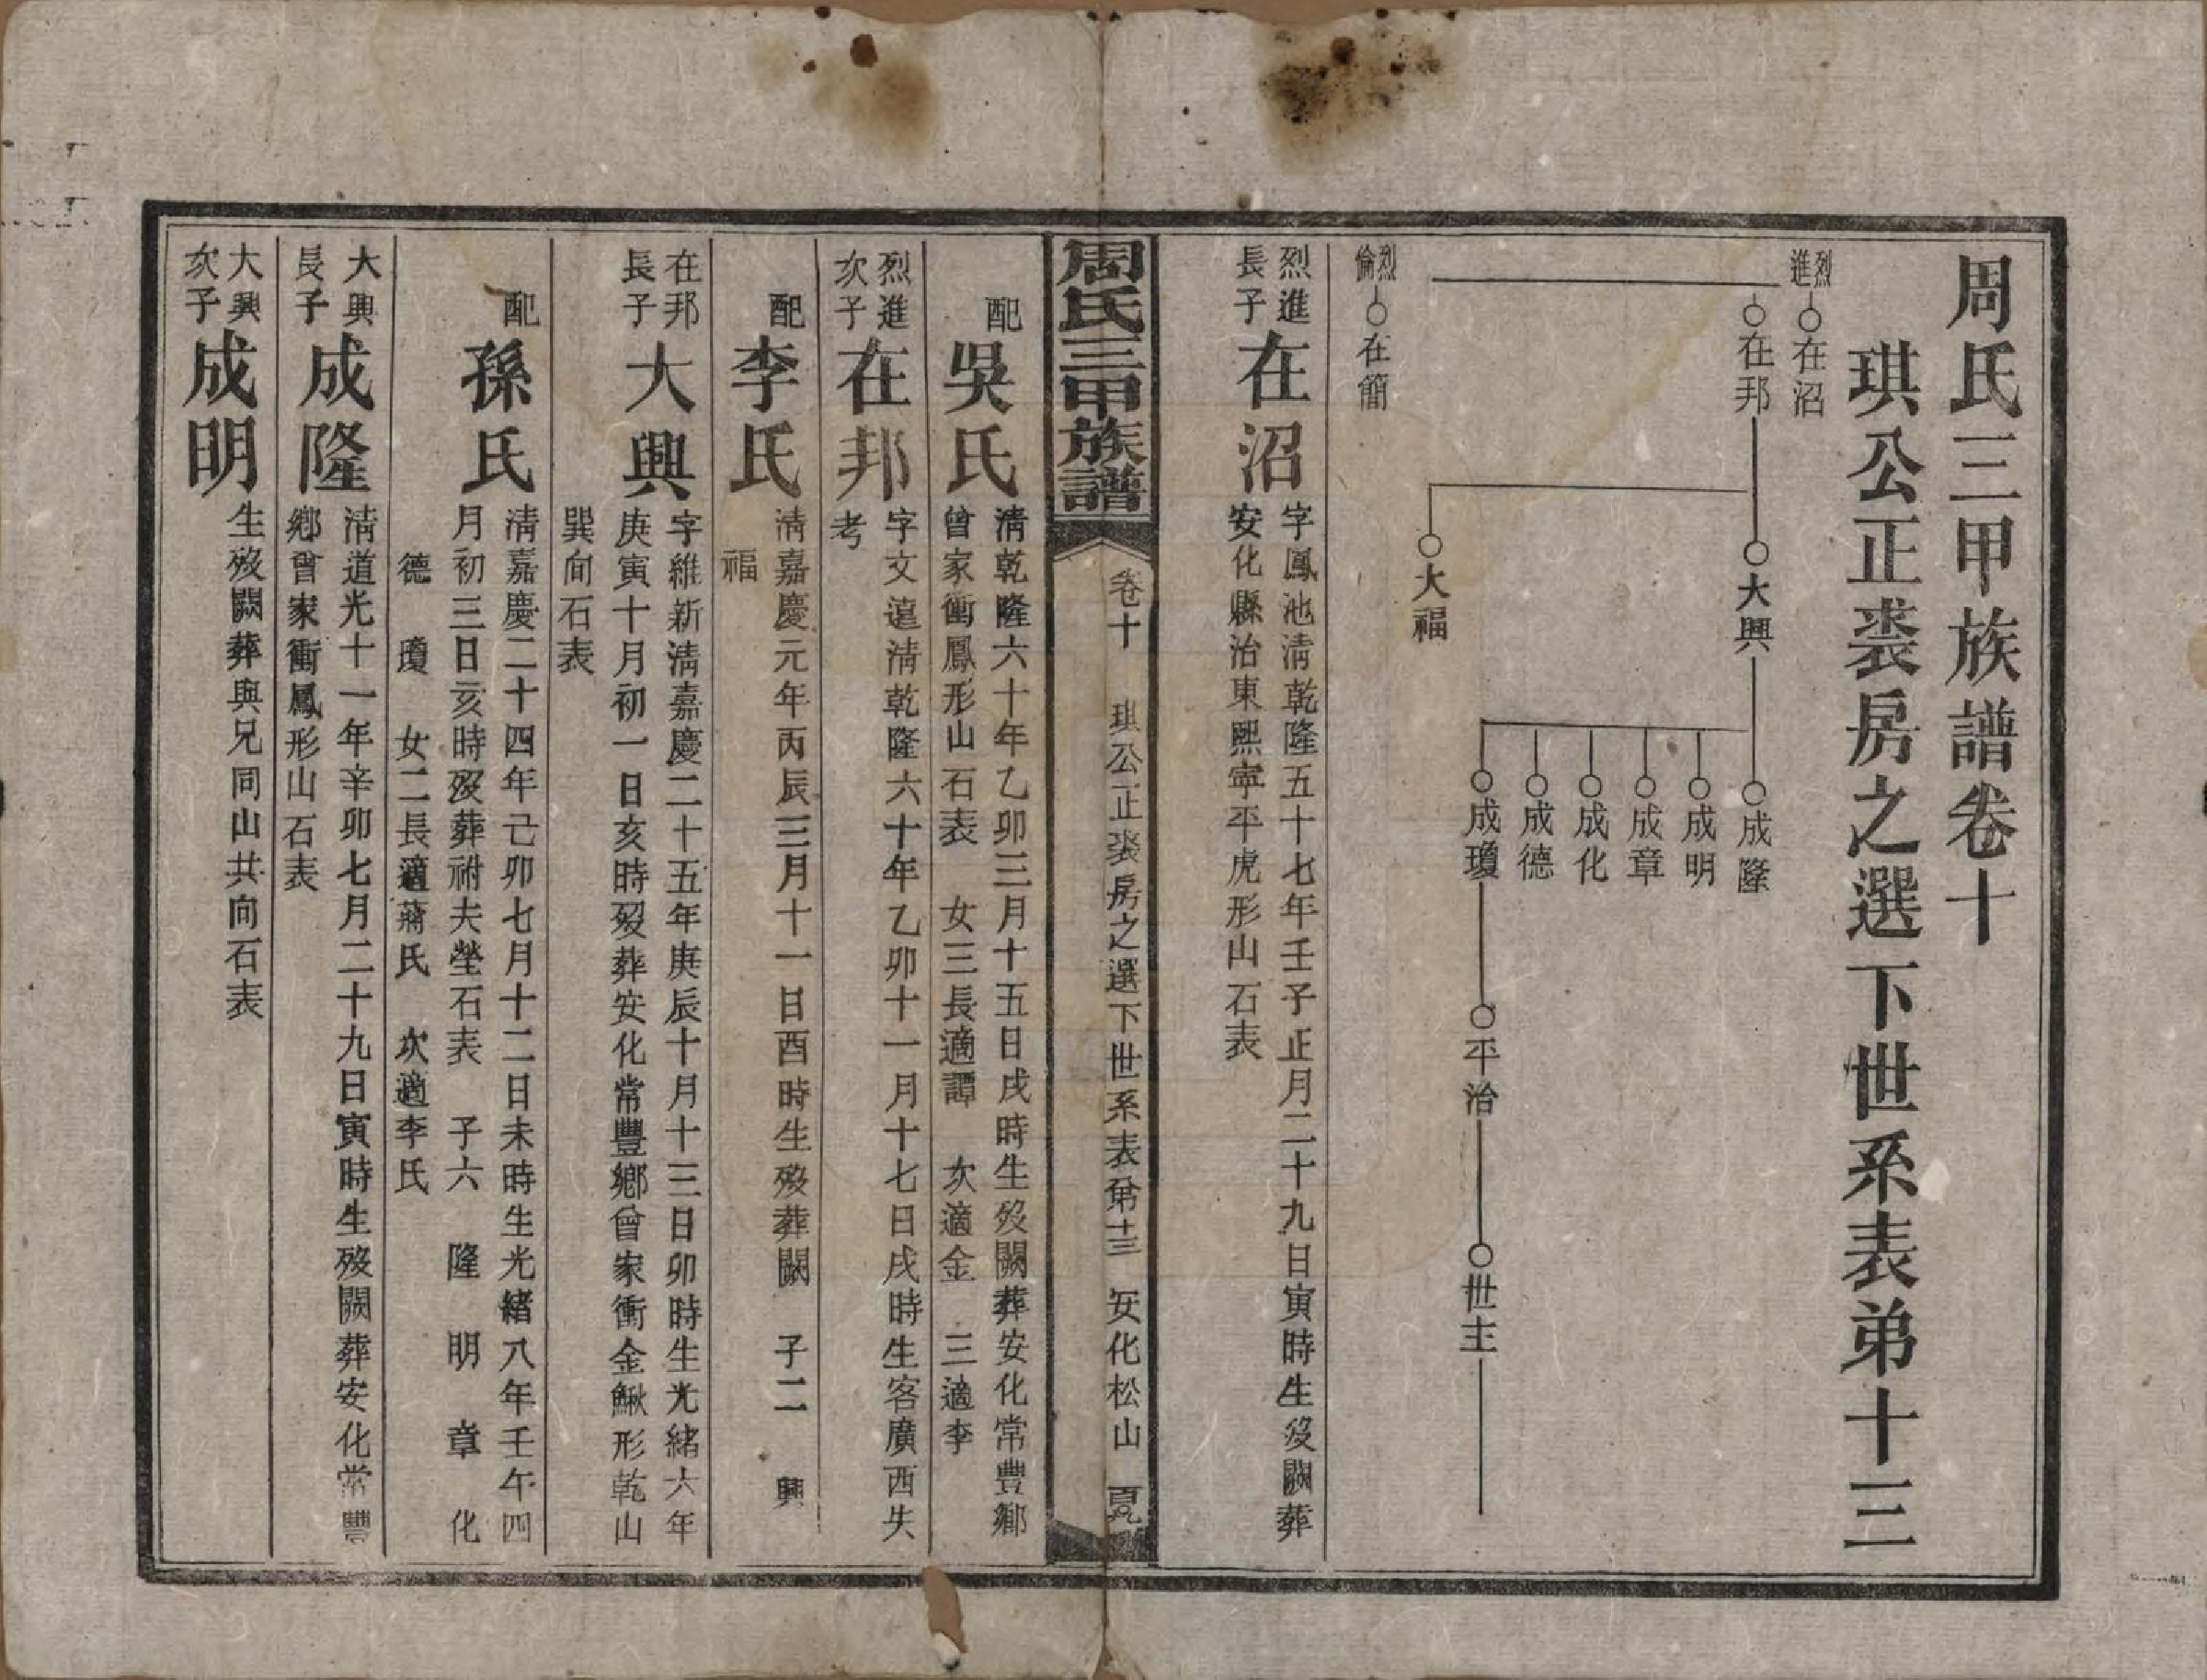 周氏三甲族譜卷十
琪公正裘房之選下世系表弟十三
烈進○在沼
○在邦
○大興
○大福
○成隆
○成明
○成章
○成化
○成德
○成瓊
○平治
○世主
烈倫○在簡
烈進長子在沼字鳳池清乾隆五十七年壬子正月二十九日寅時生歿闕葬
安化縣治東熙寧平虎形山石表
周氏三甲族譜 卷十 琪公正裘房之選下世系表第十三 安化松山
配吳氏清乾隆六十年乙卯三月十五日戌時生歿闕葬安化常豐鄉
曾家衝鳳形山石表 女三長適譚 次適金 三適李
烈進次子在邦字文遠清乾隆六十年乙卯十一月十七日戌時生客廣西失
考
配李氏清嘉慶元年丙辰三月十一日酉時生歿葬闕 子二 興
福
在邦長子大興字維新清嘉慶二十五年庚辰十月十三日卯時生光緒六年
庚寅十月初一日亥時歿葬安化常豐鄉曾家衝金鰍形乾山
巽向石表
配孫氏清嘉慶二十四年己卯七月十二日未時生光緒八年壬午四
月初三日亥時歿葬祔夫塋石表 子六 隆 明 章 化
德 瓊 女二長適蔣氏 次適李氏
大興長子成隆清道光十一年辛卯七月二十九日寅時生歿闕葬安化常豐
鄉曾家衝鳳形山石表
大興次子成明生歿闕葬與兄同山共向石表